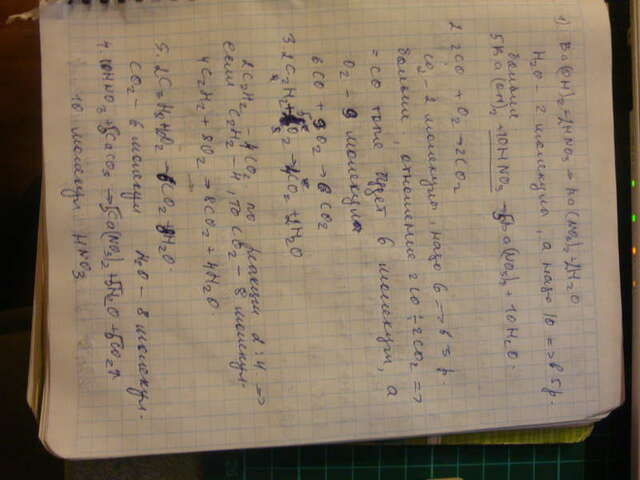 1) Ba(OH)2+2HNO3 → Ba(NO3)2+2H2O
H2O - 2 молекулы, а надо 10 => в 5 р.
больше
5Ba(OH)2 + 10HNO3 → 5Ba(NO3)2 + 10H2O.
2. 2CO + O2 → 2CO2
CO2 - 2 молекулы, надо 6 → в 3 р.
больше; отношение 2CO÷2CO2 =>
= CO тоже будет 6 молекул, а
O2 - молекула
6CO + O2 → 6CO2
3. 2C2H2 + O2 → 4CO2 + 2H2O
2C2H2 - 4CO2 по реакции 2:4 =>
если C2H2 - 4, то CO2 - 8 молекул
4C2H2 + 8O2 → 8CO2 + 4H2O
5. CO2 + H2O.
CO2 - 6 молекул H2O - 8 молекул.
4. 10HNO3 + 5CaCO3 → 5Ca(NO3)2 + 5H2O + 5CO2↑
10 молекул HNO3